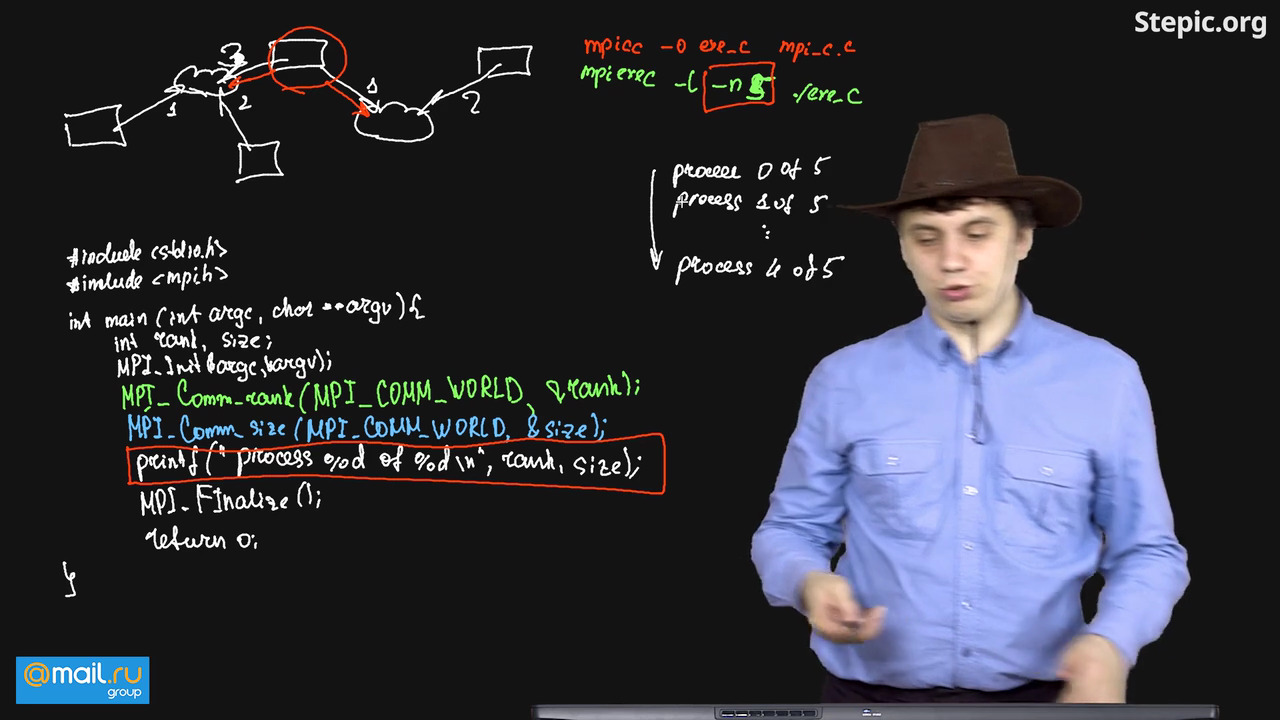 Stepic.org
3
1
2
1
2
mpicc -o exe_c mpi_c.c
mpiexec -l -n 5 ./exe_c
process 0 of 5
process 1 of 5
⋮
process 4 of 5
#include <stdio.h>
#include <mpi.h>
int main (int argc, char **argv) {
int rank, size;
MPI_Init(&argc, &argv);
MPI_Comm_rank(MPI_COMM_WORLD, &rank);
MPI_Comm_size (MPI_COMM_WORLD, &size);
printf (" process %d of %d \n", rank, size);
MPI_FInalize ();
return 0;
}
@mail.ru
group